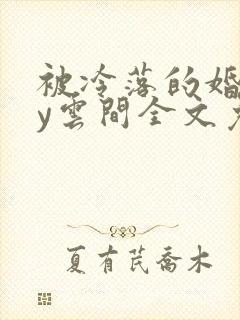 被冷落的婚
y雲間全文
夏有芪喬木